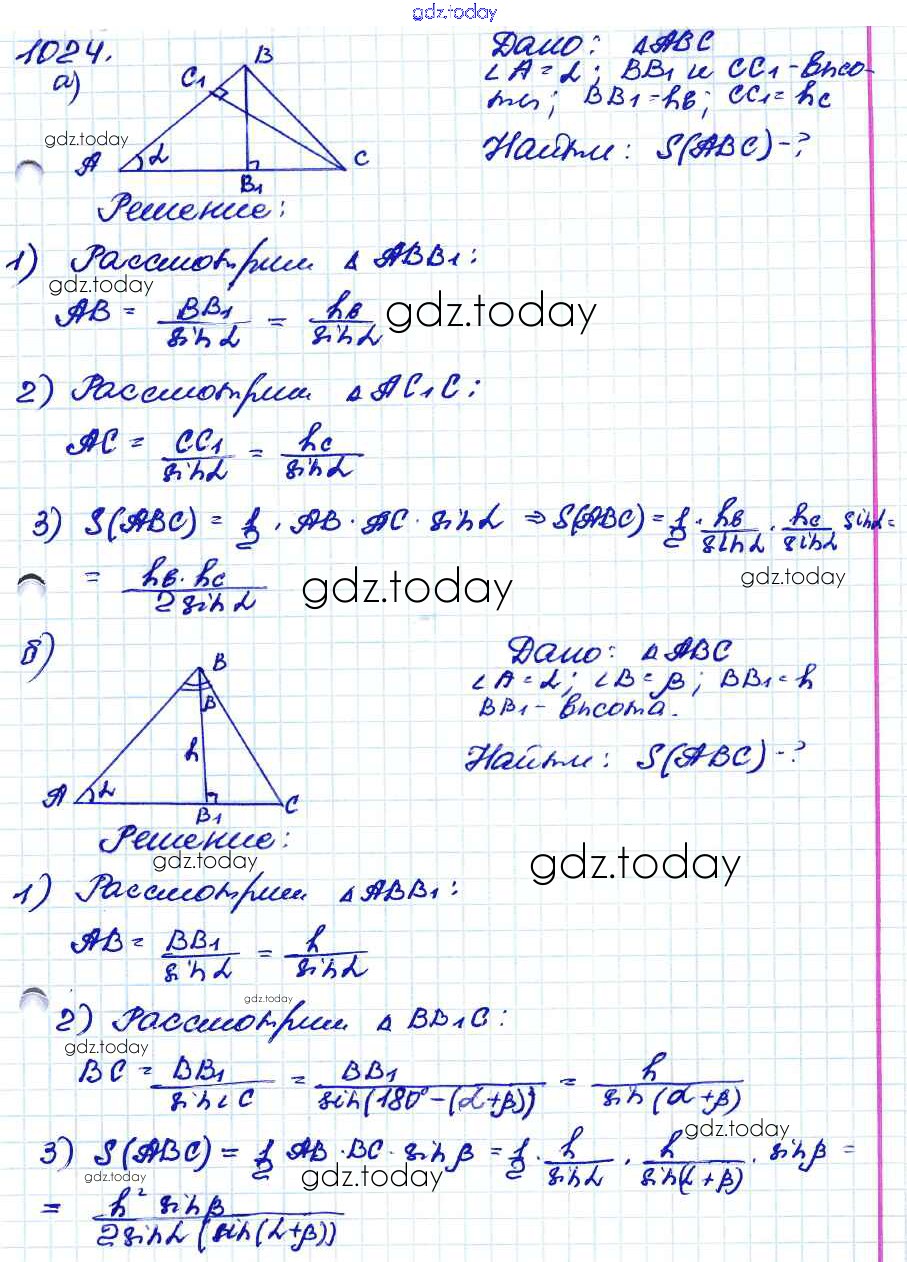 gdz.today
1024.
а)
B
C₁
A
α
B₁
C
Дано: △ABC
∠A = α; BB₁ и CC₁ - высо-
ты; BB₁ = hв; CC₁ = hc
Найти: S(ABC) - ?
gdz.today
Решение:
1) Рассмотрим △ABB₁:
gdz.today
AB = BB₁/sin α = hв/sin α
gdz.today
2) Рассмотрим △AC₁C:
AC = CC₁/sin α = hc/sin α
3) S(ABC) = 1/2 · AB · AC · sin α ⇒ S(ABC) = 1/2 · hв/sin α · hc/sin α sin α =
= hв · hc/2 sin α
gdz.today
gdz.today
б)
B
β
h
A
α
B₁
C
Дано: △ABC
∠A = α; ∠B = β; BB₁ = h
BB₁ - высота.
Найти: S(ABC) - ?
Решение:
gdz.today
gdz.today
1) Рассмотрим △ABB₁:
AB = BB₁/sin α = h/sin α
gdz.today
2) Рассмотрим △BB₁C:
gdz.today
BC = BB₁/sin ∠C = BB₁/sin(180° - (α + β)) = h/sin(α + β)
gdz.today
3) S(ABC) = 1/2 AB · BC · sin β = 1/2 · h/sin α · h/sin(α + β) · sin β =
gdz.today
gdz.today
= h² sin β/2 sin α (sin(α + β))